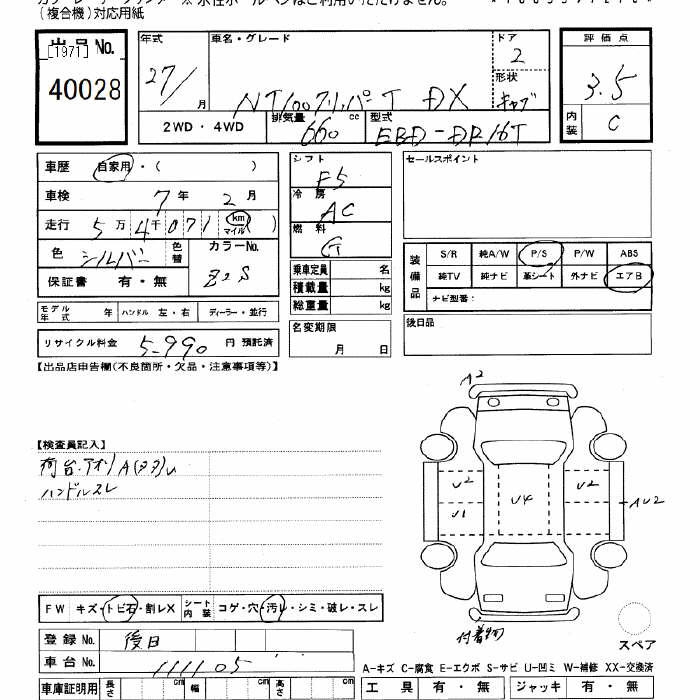 (複合機)対応用紙
出品No.
[1971]
40028
年式
27/
月
車名・グレード
NT100クリッパーT DX
ドア
2
形状
キャブ
2WD・4WD
排気量
660
cc
型式
EBD-DR16T
評価点
3.5
内装
C
車歴 自家用・( )
車検 7年 2月
走行 5万4千071 km マイル ( )
色 シルバー 色替
カラーNo.
Z2S
保証書 有・無
モデル年式 年 ハンドル 左・右 ディーラー・並行
リサイクル料金 5,990 円 預託済
シフト
F5
冷房
AC
燃料
G
乗車定員 名
積載量 kg
総重量 kg
名変期限
月 日
セールスポイント
装備品
S/R 純A/W P/S P/W ABS
純TV 純ナビ 革シート 外ナビ エアB
ナビ型番:
後日品
【出品店申告欄(不良箇所・欠品・注意事項等)】
【検査員記入】
荷台・アオリA(タタ)U
ハンドルスレ
A2
U2
U4
U2
U1
AU2
付着物
スペア
FW キズ・トビ石・割レX シート内装 コゲ・穴・汚レ・シミ・破レ・スレ
登録No. 後日
車台No. 111105
車庫証明用 長さ cm 幅 cm 高さ cm
A-キズ C-腐食 E-エクボ S-サビ U-凹ミ W-補修 XX-交換済
工具 有・無 ジャッキ 有・無